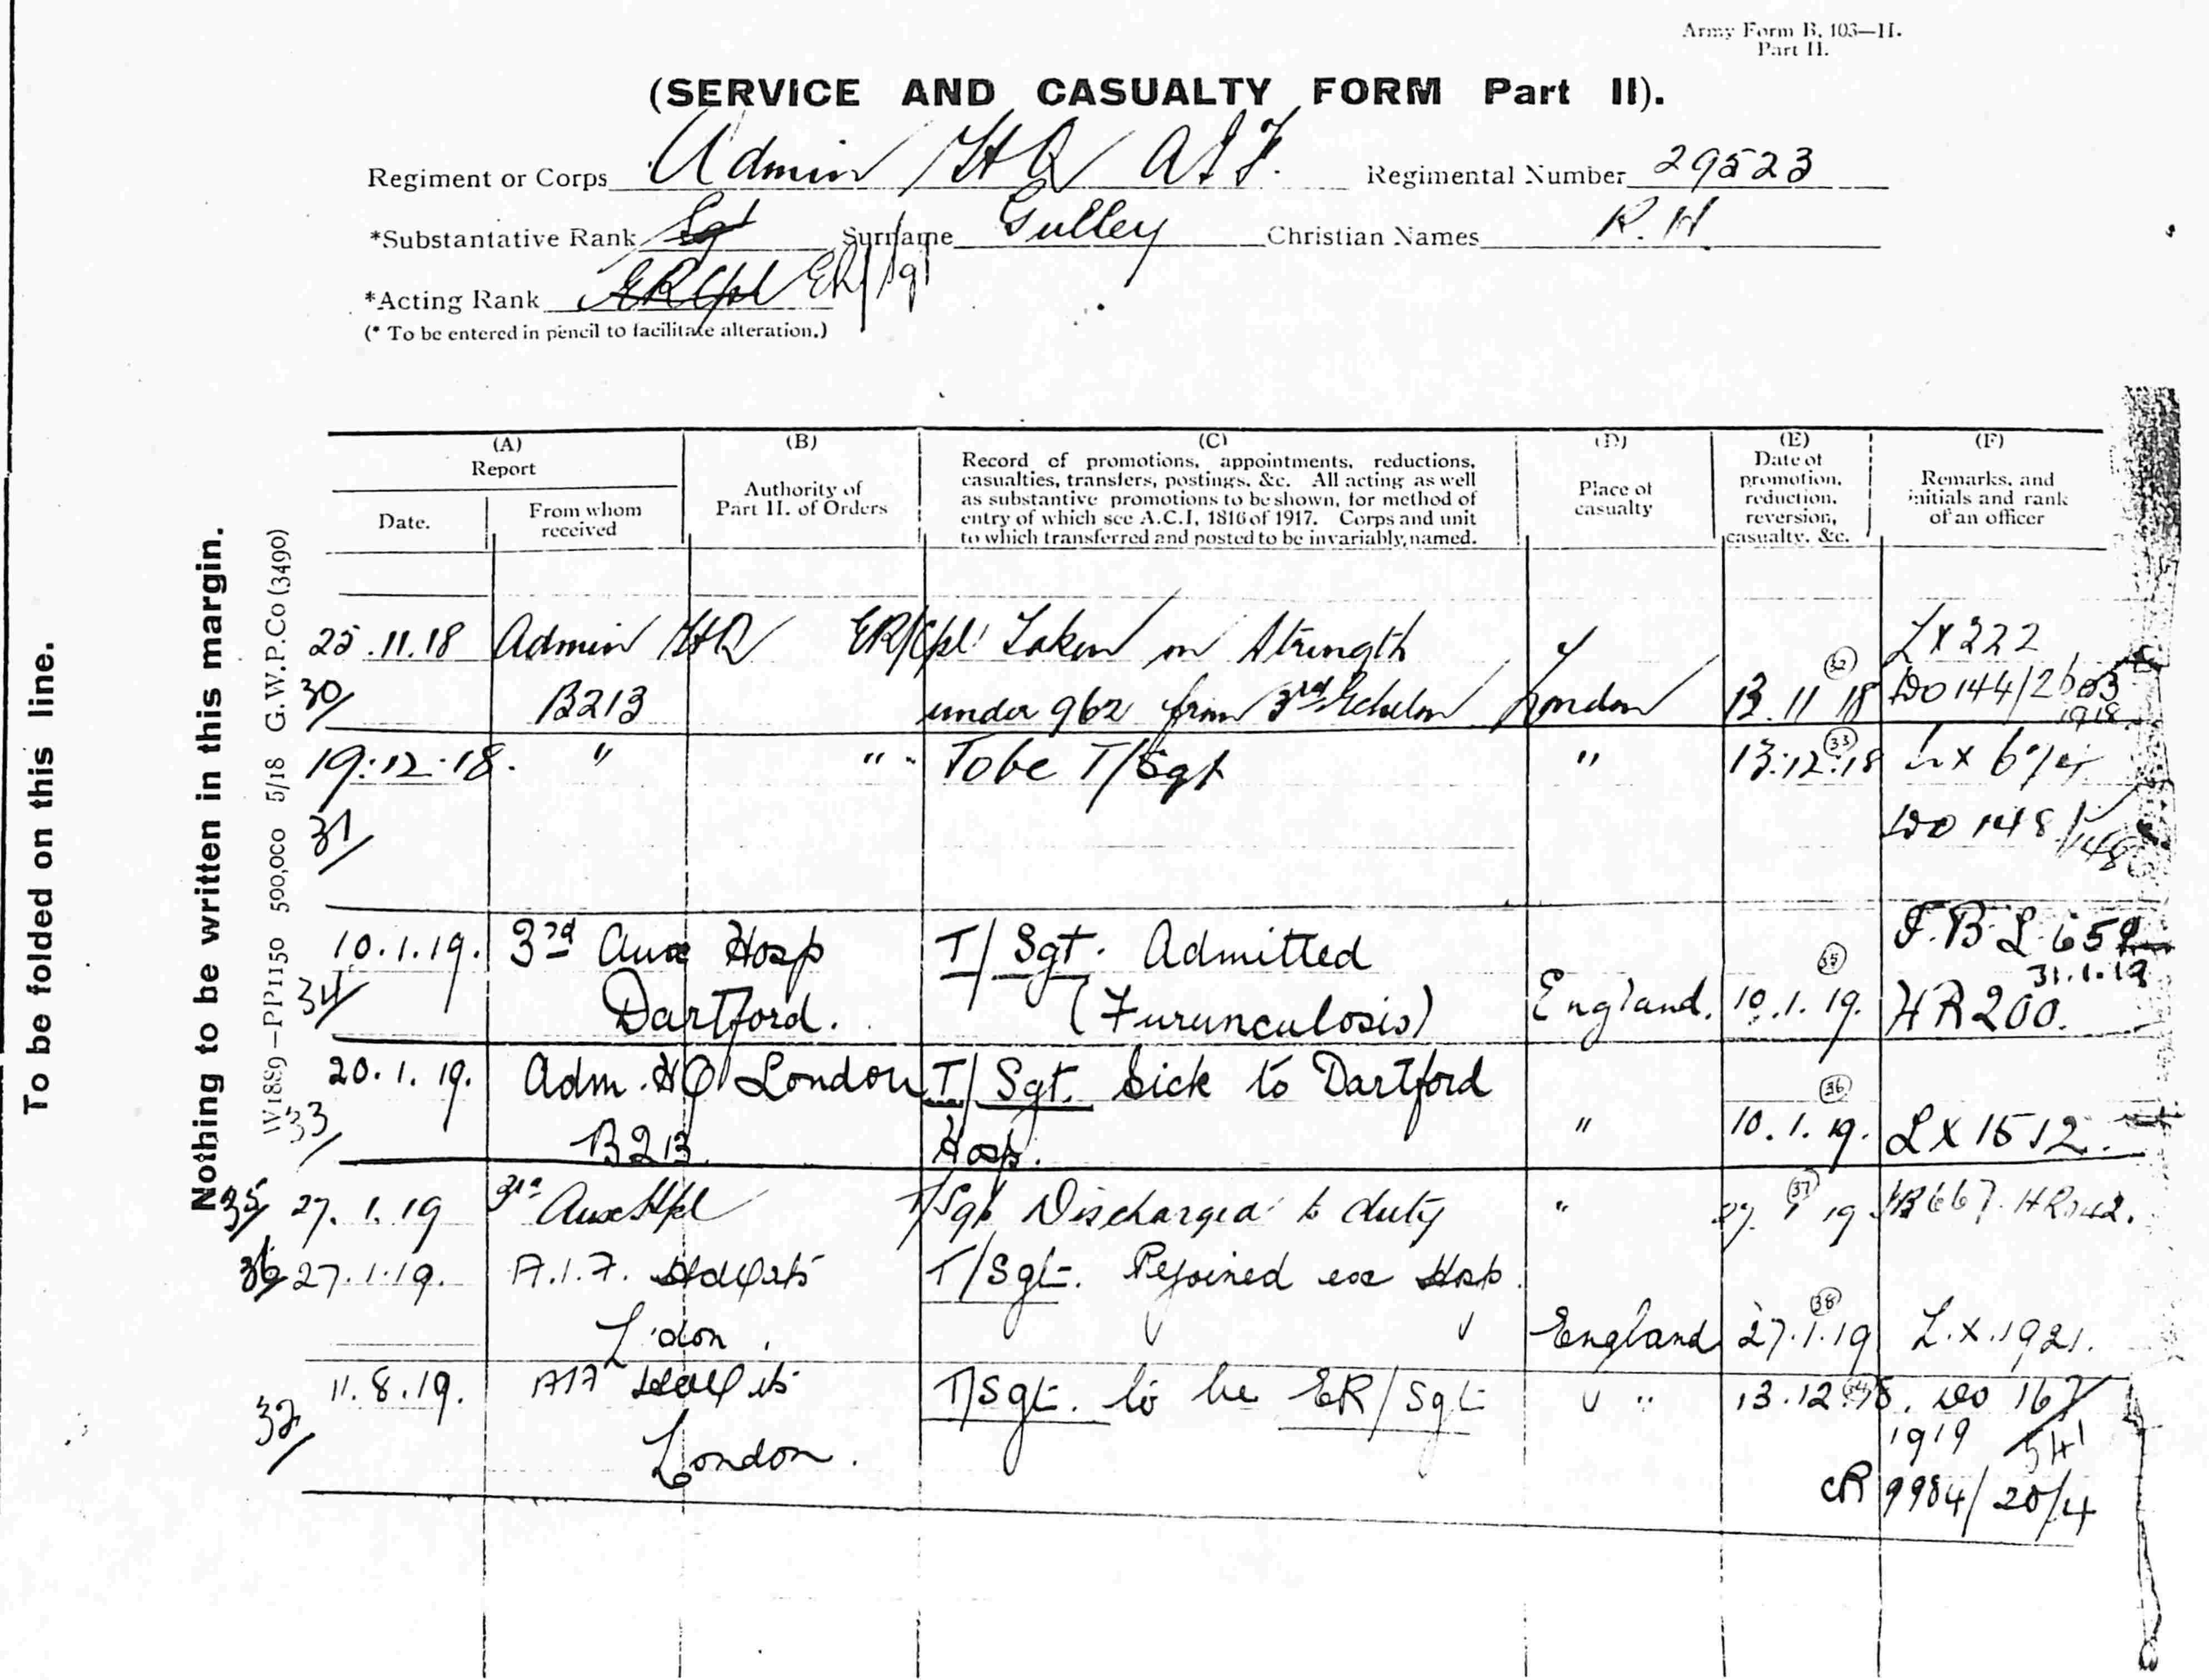 Army Form B. 103—II.
Part II.
(SERVICE AND CASUALTY FORM Part II).
Regiment or Corps Admin HQ AIF. Regimental Number 29523
*Substantative Rank Sgt Surname Gulley Christian Names R. H.
*Acting Rank ER Cpl ER/Sgt
(* To be entered in pencil to facilitate alteration.)
To be folded on this line.
Nothing to be written in this margin.
W1889—PP1150 590,000 5/18 G.W.P.Co (3490)
(A) (B) (C) (D) (E) (F)
Report
Date.
From whom
received
Authority of
Part II. of Orders
Record of promotions, appointments, reductions,
casualties, transfers, postings, &c. All acting as well
as substantive promotions to be shown, for method of
entry of which see A.C.I. 1816 of 1917. Corps and unit
to which transferred and posted to be invariably named.
Place of
casualty
Date of
promotion,
reduction,
reversion,
casualty, &c.
Remarks, and
initials and rank
of an officer
25.11.18 Admin HQ ER/Cpl Taken on Strength LX 222
30/ B213 under 962 from 3rd Echelon London 13 11 18 (32) DO 144/2603
1918
19.12.18. " " " To be T/Sgt " 13.12.18 (33)
31/ DO 148
10.1.19. 3rd Aux Hosp T/Sgt. Admitted F.B.L. 659
31.1.19
34/ Dartford. (Furunculosis) England. 10.1.19. (35) HR 200.
20.1.19. Adm. HQ London T/Sgt. Sick to Dartford
33/ B213. Hosp. " 10.1.19. (36) LX 1512.
35/ 27.1.19 3rd Aux Hpl T/Sgt Discharged to duty " 27. 1 19 (37)
36/ 27.1.19. A.I.F. Hdqts T/Sgt. Rejoined ex Hosp.
L'don. England 27.1.19 (38) L.X.1921.
11.8.19. AIF Hdqts T/Sgt. to be ER/Sgt " 13.12.18. DO 167
32/ London. 1919 541
CR 9984/20/4